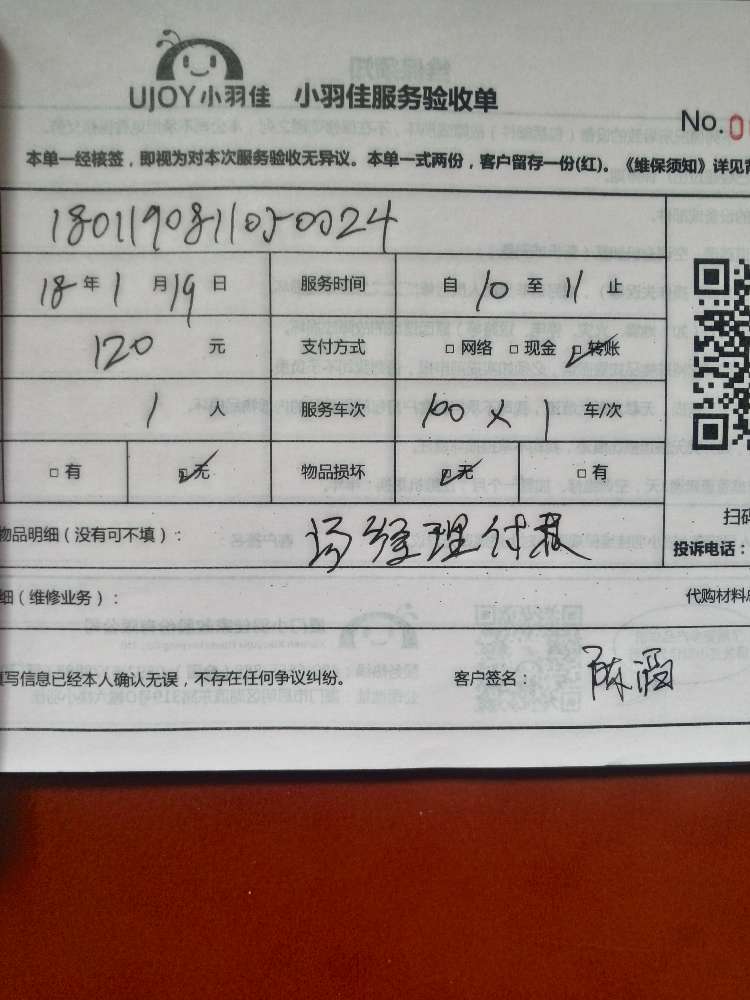 UJOY小羽佳 小羽佳服务验收单
No.0
本单一经核签，即视为对本次服务验收无异议。本单一式两份，客户留存一份(红)。《维保须知》详见背
1801190811050024
18年1月19日 服务时间 自10至11止
120元 支付方式 □网络 □现金 ☑转账
1人 服务车次 100×1车/次
□有 ☑无 物品损坏 ☑无 □有
物品明细（没有可不填）： 经理付款
扫码
投诉电话：
细（维修业务）： 代购材料
填写信息已经本人确认无误，不存在任何争议纠纷。 客户签名： 陈